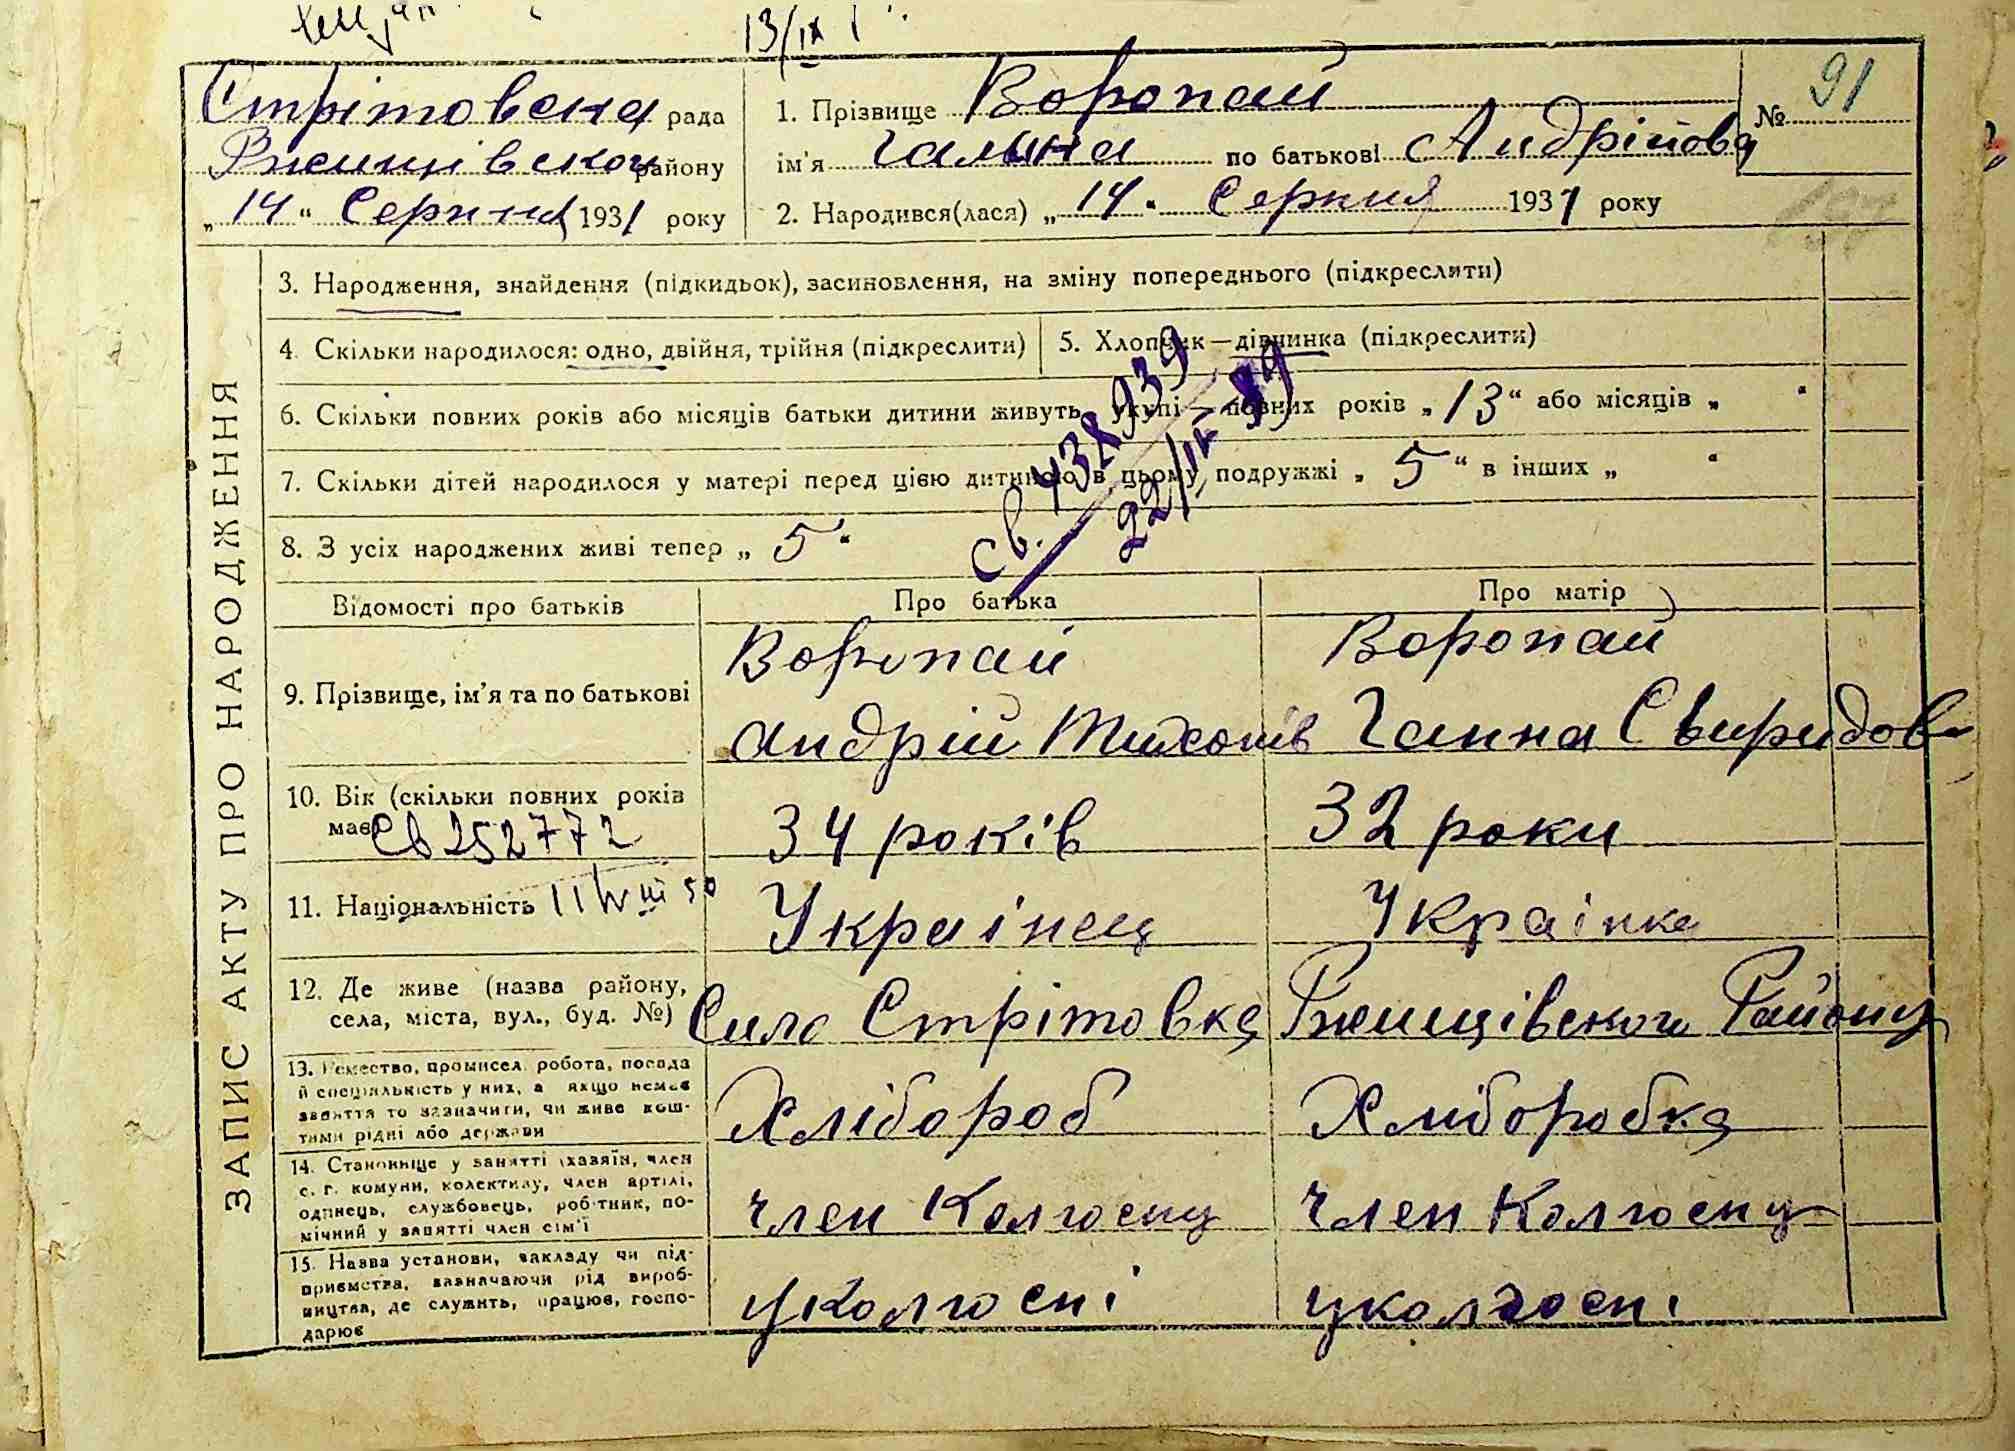 13/IX
Стрітовска рада
Ржищівского району
„14“ Серпня 1931 року
1. Прізвище Воропай
ім'я Галина по батькові Андрійова
2. Народився(лася) „14“ Серпня 1931 року
№ 91
ЗАПИС АКТУ ПРО НАРОДЖЕННЯ
3. Народження, знайдення (підкидьок), засиновлення, на зміну попереднього (підкреслити)
4. Скільки народилося: одно, двійня, трійня (підкреслити)
5. Хлопчик — дівчинка (підкреслити)
6. Скільки повних років або місяців батьки дитини живуть укупі — повних років „13“ або місяців „ “
7. Скільки дітей народилося у матері перед цією дитиною в цьому подружжі „5“ в інших „ “
8. З усіх народжених живі тепер „5“
Св. 438939
22/IX-39
Відомості про батьків
Про батька
Про матір
9. Прізвище, ім'я та по батькові
Воропай
Андрій Тихонів
Воропай
Ганна Свиридов
10. Вік (скільки повних років
має)
Св 252772
34 років
32 роки
11. Національність
50
Українец
Українка
12. Де живе (назва району,
села, міста, вул., буд. №)
Село Стрітовка Ржищівского Району
13. Ремество, промисел, робота, посада
й спеціяльність у них, а якщо немає
заняття то зазначити, чи живе кош-
тами рідні або держави
Хлібороб
Хліборобка
14. Становище у занятті (хазяїн, член
с. г. комуни, колективу, член артілі,
одинець, службовець, робітник, по-
мічний у занятті член сім'ї
член Колгоспу
член Колгоспу
15. Назва установи, закладу чи під-
приємства, зазначаючи рід вироб-
ництва, де служить, працює, госпо-
дарює
у колгоспі
у колгоспі